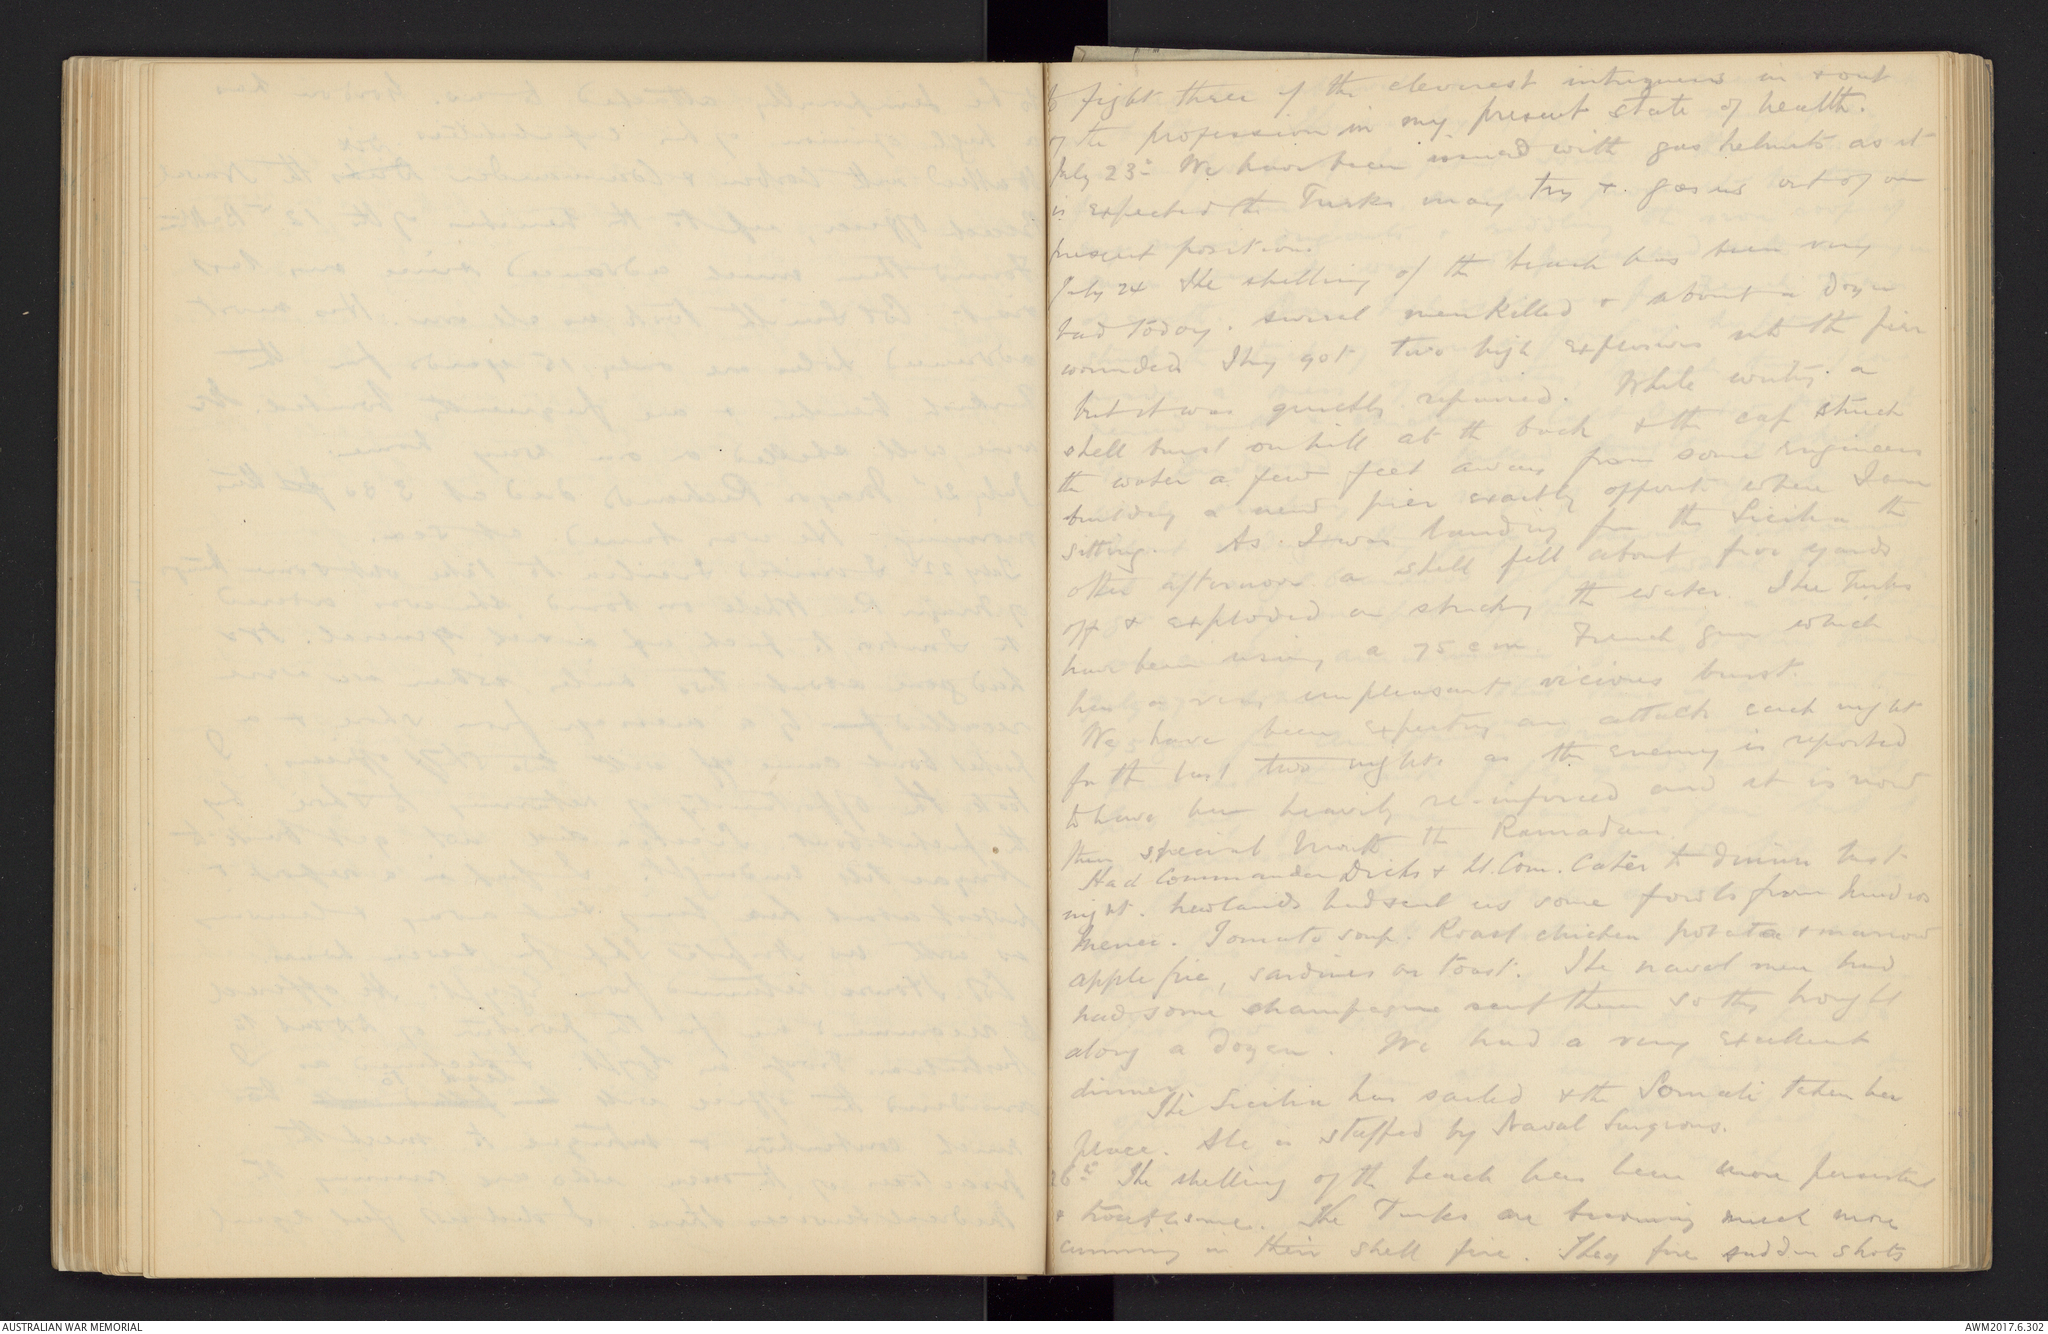 to fight three of the cleverest intriguers in & out
of the profession in my present state of health.
July 23rd We have been issued with gas helmets as it
is expected the Turks may try & gas us out of our
present position.
July 24 The shelling of the beach has been very
bad today. several men killed & about a dozen
wounded They got two high explosives into the pier
but it was quickly repaired. While writing a
shell burst on hill at the back & the cap struck
the water a few feet away from some Engineers
building a new pier exactly opposite where I am
sitting. As I was landing from the Sicilia the
other afternoon a shell fell about five yards
off & exploded on striking the water. The Turks
have been using a 75 cm. French gun which
has a very unpleasant vicious burst.
We have been expecting an attack each night
for the last two nights as the enemy is reported
to have been heavily re-inforced and it is now
their special month the Ramadan.
Had Commander Dicks & Lt. Com. Cater to dinner last
night. Newlands had sent us some fowls from Imbros
Menu. Tomato soup. Roast chicken potatoe & marrow
apple pie, sardines on toast. The naval men had
had some champagne sent them so they brought
along a dozen. We had a very excellent
dinner.
The Sicilia has sailed & the Somali taken her
place. She is staffed by Naval Surgeons.
26th The shelling of the beach has been more persistent
& troublesome. The Turks are becoming much more
cunning in their shell fire. They fire sudden shots
AUSTRALIAN WAR MEMORIAL
AWM2017.6.302